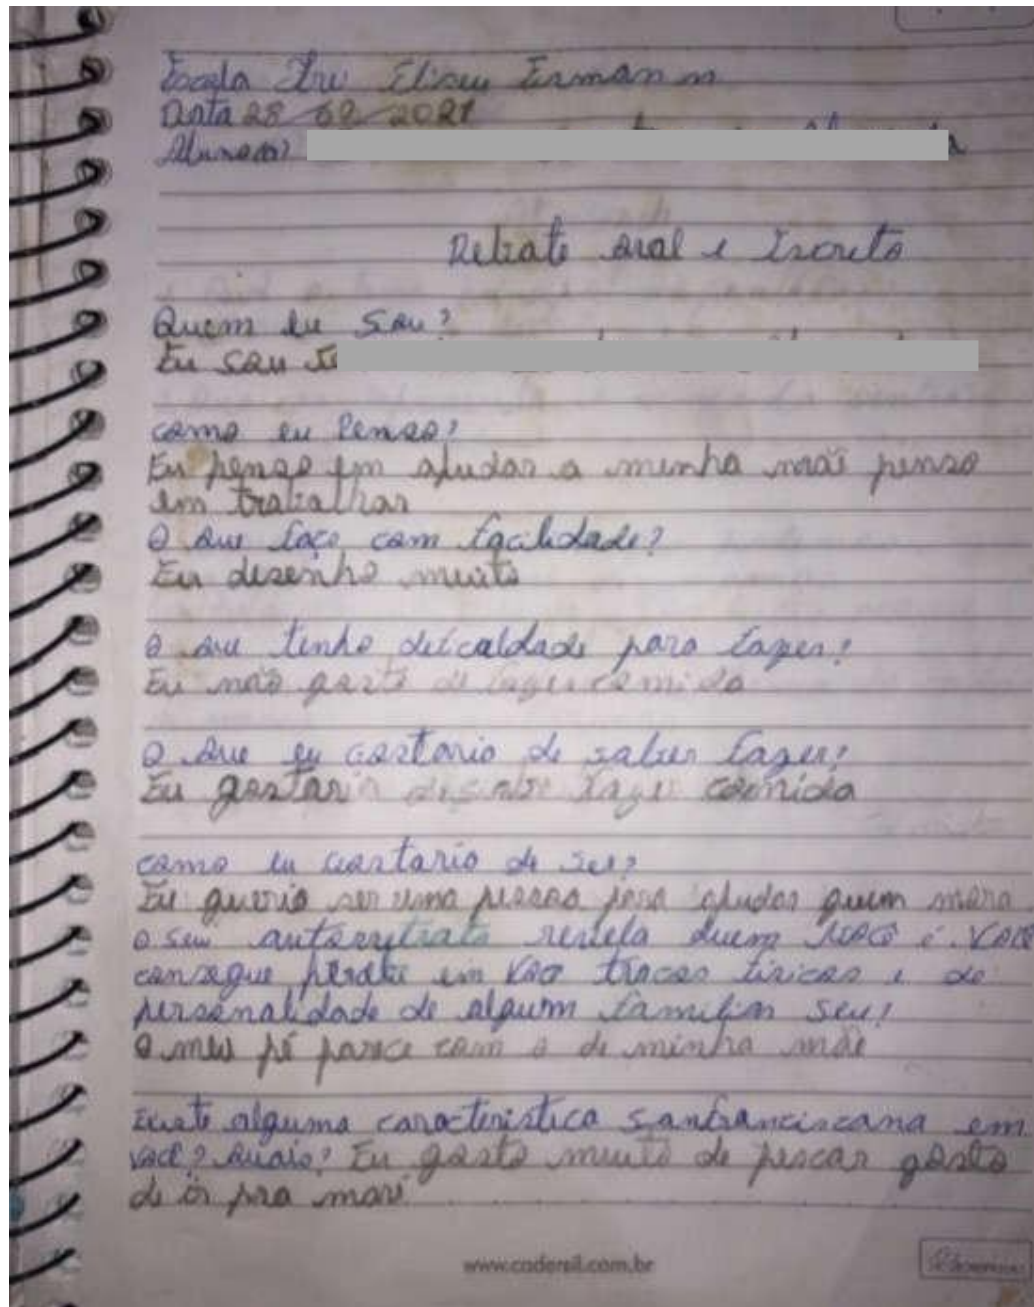 Escola Eliseu
Data 28/09/2021
Aluno(a)?
Retrato oral e Escrito
Quem eu sou?
Eu sou
como eu Penso?
Eu penso em ajudar a minha maẽ penso
em trabalhar
O que faço com facilidade?
Eu desenho muito
O que tenho deficaldade para fazer?
Eu não gosto de fazer comida
O que eu gostario de saber fazer?
Eu gostaria fazer comida
como eu gostario de ser?
Eu queria ser uma pessoa para ajudar quem mora
o seu autorretrato revela quem você é. Você
consegue em você traços físicos e de
personalidade de algum familiar seu?
O meu pé parece com o de minha mãe
Existe alguma característica sanfranciscana em
você? Quais? Eu gosto muito de pescar gosto
de ir pra maré
www.cadersil.com.br